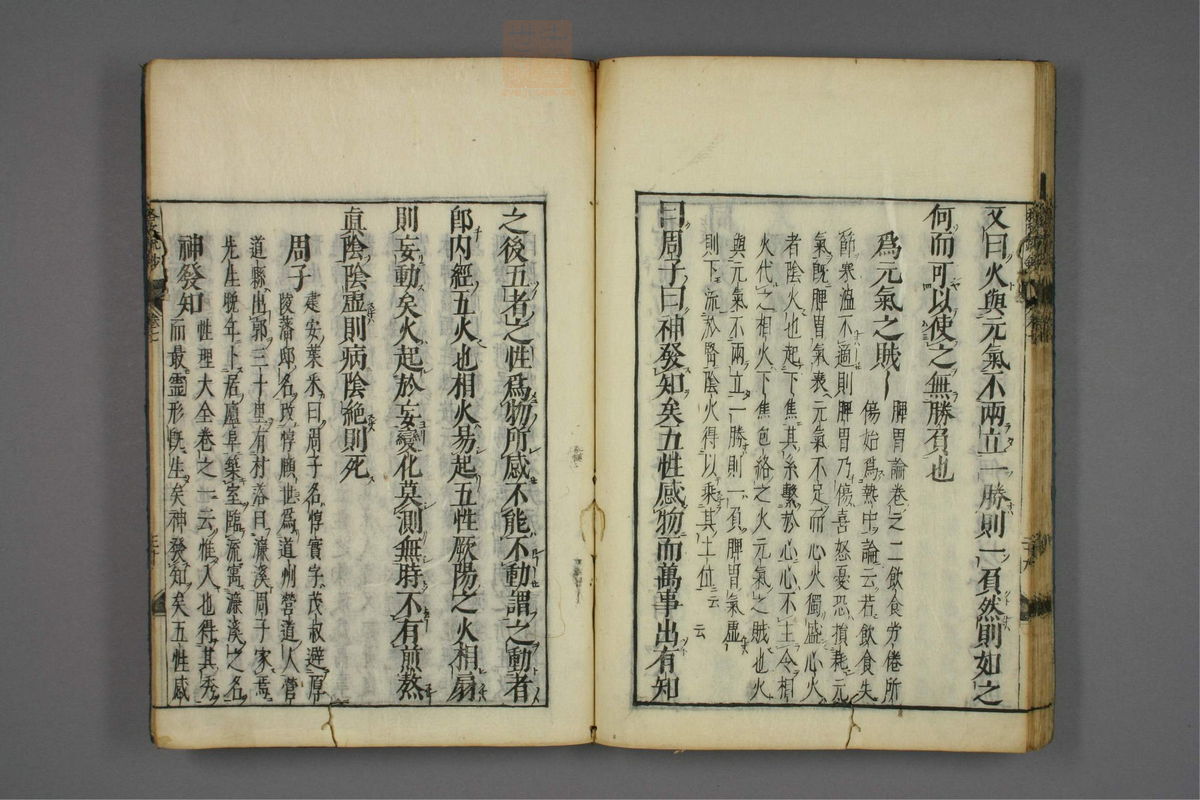 又曰火與元氣不兩立一勝則一負然則如之
何而可以使之無勝負也
爲元氣之賊
脾胃論卷之二飲食勞倦所
傷始爲熱中論云若飲食失
節寒溫不適則脾胃乃傷喜怒憂恐損耗元
氣旣脾胃氣衰元氣不足而心火獨盛心火
者陰火也起下焦其系繫於心心不主令相
火代之相火下焦包絡之火元氣之賊也火
與元氣不兩立一勝則一負脾胃氣虛
則下流於腎陰火得以乘其土位云云
曰周子曰神發知矣五性感物而萬事出有知
之後五者之性爲物所感不能不動謂之動者
卽內經五火也相火易起五性厥陽之火相扇
則妄動矣火起於妄變化莫測無時不有煎熬
眞陰陰虛則病陰絕則死
周子
建安葉釆曰周子名惇實字茂叔避厚
陵藩邸名改惇頤世爲道州營道人營
道縣出郭三十里有村落曰濂溪周子家焉
先生晩年卜居廬阜築室臨流寓濂溪之名
神發知
性理大全卷之一云惟人也得其秀
而最靈形旣生矣神發知矣五性感